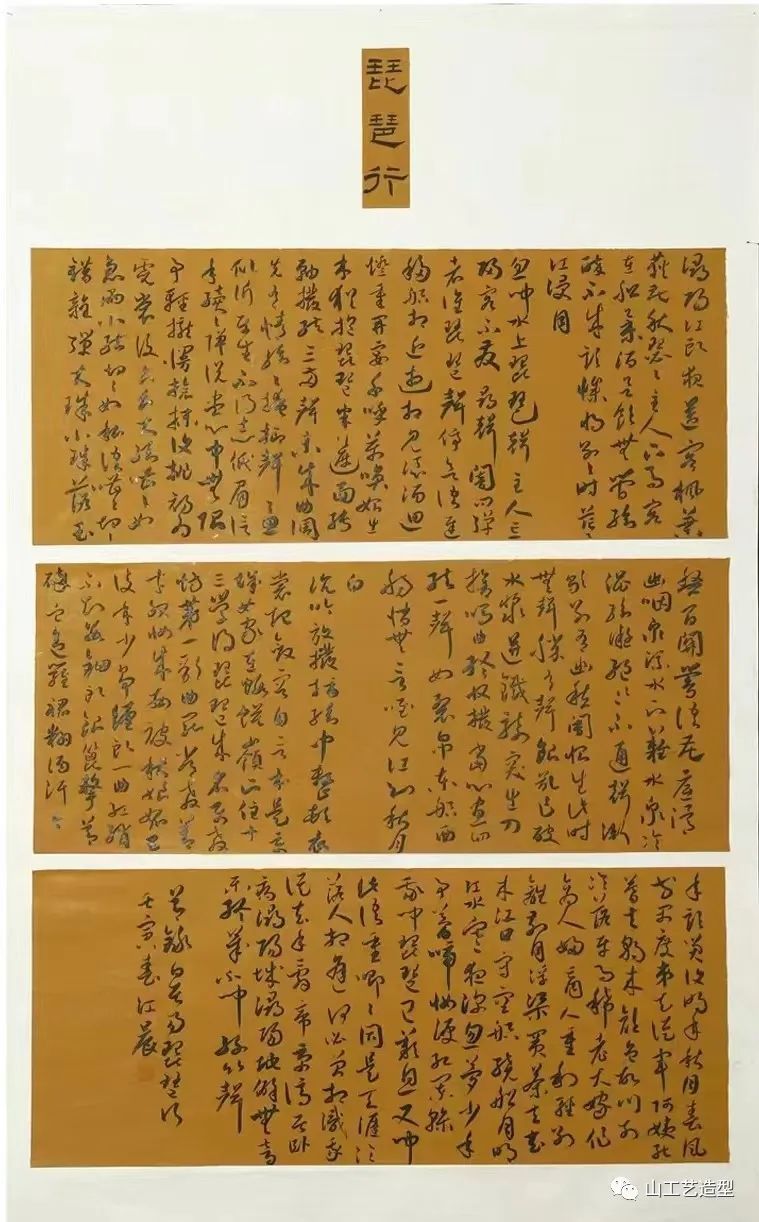 琵琶行
潯陽江頭夜送客楓葉
荻花秋瑟瑟主人下馬客
在船舉酒欲飲無管絃
醉不成歡慘將別別時茫茫
江浸月
忽聞水上琵琶聲主人忘
歸客不發尋聲闇問彈
者誰琵琶聲停欲語遲
移船相近邀相見添酒回
燈重開宴千呼萬喚始出
來猶抱琵琶半遮面轉
軸撥絃三兩聲未成曲調
先有情絃絃掩抑聲聲思
似訴平生不得志低眉信
手續續彈說盡心中無限
事輕攏慢撚抹復挑初為
霓裳後六幺大絃嘈嘈如
急雨小絃切切如私語嘈嘈切切
錯雜彈大珠小珠落玉
盤間關鶯語花底滑
幽咽泉流水下灘水泉冷
澀絃凝絕凝絕不通聲漸
歇別有幽愁闇恨生此時
無聲勝有聲銀瓶乍破
水漿迸鐵騎突出刀
槍鳴曲終收撥當心畫四
絃一聲如裂帛東船西
舫悄無言唯見江心秋月
白
沈吟放撥插絃中整頓衣
裳起斂容自言本是京
城女家在蝦蟆嶺下住十
三學得琵琶成名屬教
坊第一部曲罷常教善
才服妝成每被秋娘妒五
陵年少爭纏頭一曲紅綃
不知數鈿頭銀篦擊節
碎血色羅裙翻酒汙今
年歡笑復明年秋月春風
等閒度弟走從軍阿姨死
暮去朝來顏色故門前
冷落車馬稀老大嫁作
商人婦商人重利輕別
離前月浮梁買茶去去
來江口守空船繞船月明
江水寒夜深忽夢少年
事夢啼妝淚紅闌干
我聞琵琶已歎息又聞
此語重唧唧同是天涯淪
落人相逢何必曾相識我
從去年辭帝京謫居臥
病潯陽城潯陽地僻無音
樂終歲不聞絲竹聲
節錄白居易琵琶行
壬寅春江晨
山工艺造型